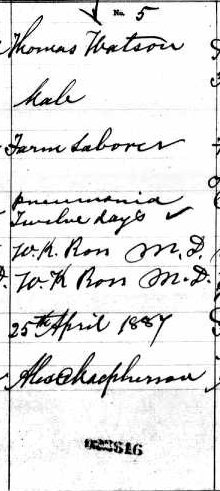 No. 5
Thomas Watson
Male
Farm Laborer
Pneumonia
Twelve days
W. K. Ross M. D.
W. K Ross M. D.
25th April 1887
Alex Macpherson